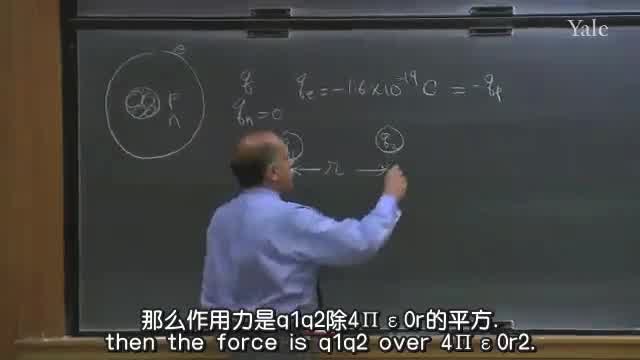 Yale
e
P
n
q
q_e = -1.6 × 10^-19 C = -q_p
q_n = 0
q_2
r
那么作用力是q1q2除4Πε0r的平方.
then the force is q1q2 over 4Πε0r2.